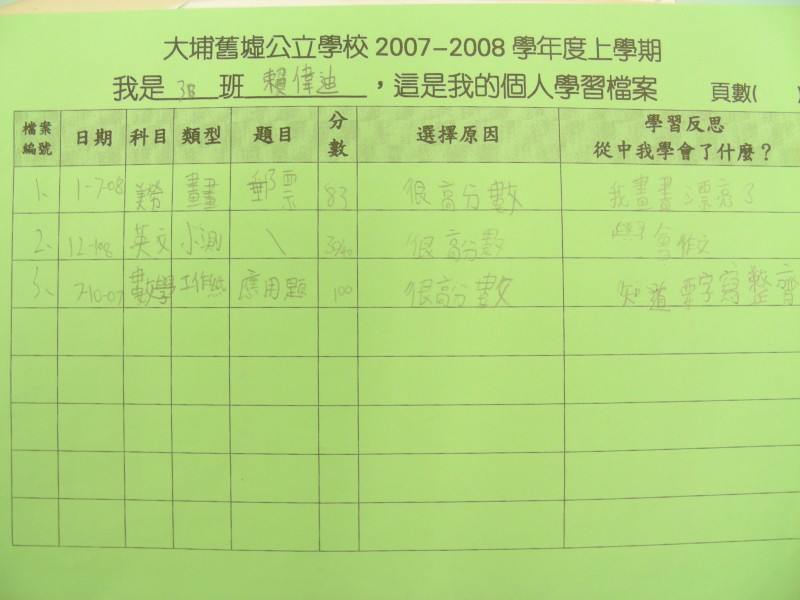 大埔舊墟公立學校 2007-2008 學年度上學期
我是 3B 班 賴偉迪 ，這是我的個人學習檔案 頁數( )
檔案編號 日期 科目 類型 題目 分數 選擇原因 學習反思 從中我學會了什麼？
1. 1-7-08 美勞 畫畫 郵票 83 很高分數 我畫畫漂亮了
2. 英文 小測 \ 很高分數 學會作文
3. 7-10-07 數學 工作紙 應用題 100 很高分數 知道要字寫整齊